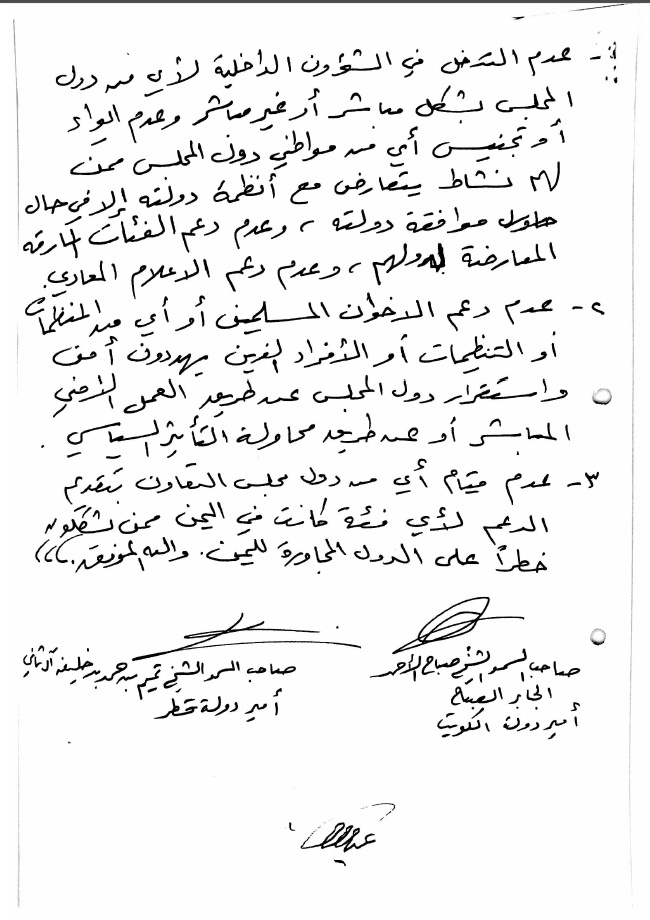 ١- عدم التدخل في الشؤون الداخلية لأي من دول
المجلس بشكل مباشر أو غير مباشر وعدم إيواء
أو تجنيس أي من مواطني دول المجلس ممن
لهم نشاط يتعارض مع أنظمة دولته إلا في حال
موافقة دولته، وعدم دعم الفئات المارقة
المعارضة لدولهم، وعدم دعم الاعلام المعادي.
٢- عدم دعم الاخوان المسلمين أو أي من المنظمات
أو التنظيمات أو الأفراد الذين يهددون أمن
واستقرار دول المجلس عن طريق العمل الأمني
المباشر أو عن طريق محاولة التأثير السياسي.
٣- عدم قيام أي من دول مجلس التعاون بتقديم
الدعم لأي فئة كانت في اليمن ممن يشكلون
خطراً على الدول المجاورة لليمن. والله الموفق،،،
صاحب السمو الشيخ صباح الأحمد
الجابر الصباح
أمير دولة الكويت
صاحب السمو الشيخ تميم بن حمد بن خليفة آل ثاني
أمير دولة قطر